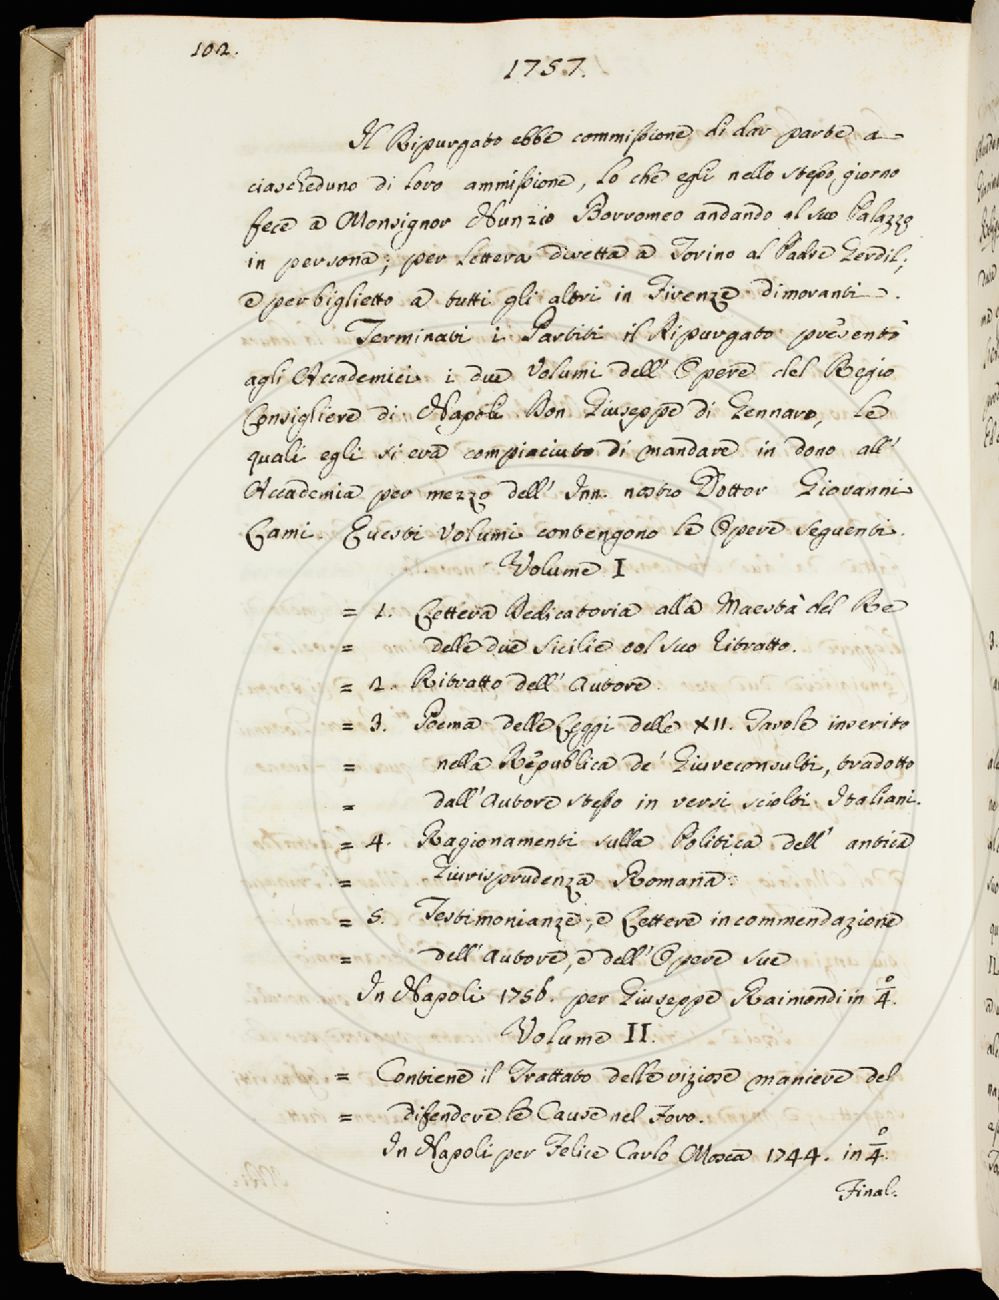 102.
1757.
Il Ripurgato ebbe commissione di dar parte a
ciascheduno di loro ammissione, lo che egli nello stesso giorno
fece a Monsignor Nunzio Borromeo andando al suo Palazzo
in persona; per lettera diretta a Torino al Padre Gerdil;
e per biglietto a tutti gli altri in Firenze dimoranti.
Terminati i Partiti il Ripurgato presentò
agli Accademici i due Volumi dell' Opere del Regio
Consigliere di Napoli Don Giuseppe di Gennaro, le
quali egli si era compiaciuto di mandare in dono all'
Accademia per mezzo dell' Inn. nostro Dottor Giovanni
Lami. Questi Volumi contengono le Opere seguenti.
Volume I
= 1. Lettera Dedicatoria alla Maestà del Re
= delle due Sicilie col suo Ritratto.
= 2. Ritratto dell' Autore
= 3. Poema delle Leggi delle XII. Tavole inserito
= nella Republica de' Giureconsulti, tradotto
= dall' Autore stesso in versi sciolti Italiani.
= 4. Ragionamenti sulla Politica dell' antica
= Giurisprudenza Romana
= 5. Testimonianze, e Lettere in commendazione
= dell' Autore, e dell' Opere sue
In Napoli 1756. per Giuseppe Raimondi in 4.°
Volume II.
= Contiene il Trattato delle viziose maniere del
= difendere le Cause nel Foro.
In Napoli per Felice Carlo Mosca 1744. in 4.°
Final.